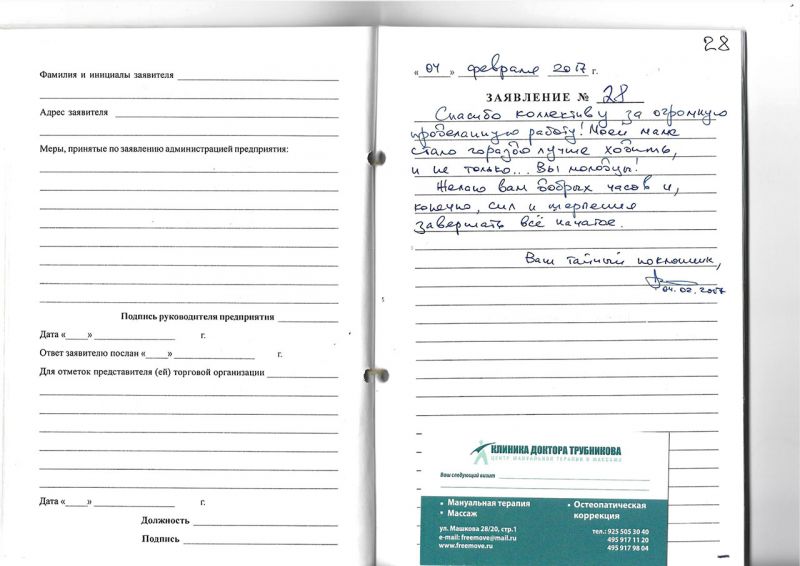 Фамилия и инициалы заявителя
Адрес заявителя
Меры, принятые по заявлению администрацией предприятия:
Подпись руководителя предприятия
Дата «____» г.
Ответ заявителю послан «____» г.
Для отметок представителя (ей) торговой организации
Дата «____» г.
Должность
Подпись
28
« 04 » февраля 2017 г.
ЗАЯВЛЕНИЕ № 28
Спасибо коллективу за огромную
проделанную работу! Моей маме
стало гораздо лучше ходить,
и не только... Вы молодцы!
Желаю вам добрых часов и,
конечно, сил и терпения
завершать всё начатое.
Ваш тайный поклонник,
04.02.2017
КЛИНИКА ДОКТОРА ТРУБНИКОВА
ЦЕНТР МАНУАЛЬНОЙ ТЕРАПИИ И МАССАЖА
Ваш следующий визит
• Мануальная терапия
• Массаж
• Остеопатическая
коррекция
ул. Машкова 28/20, стр.1
e-mail: freemove@mail.ru
www.freemove.ru
тел.: 925 505 30 40
495 917 11 20
495 917 98 04